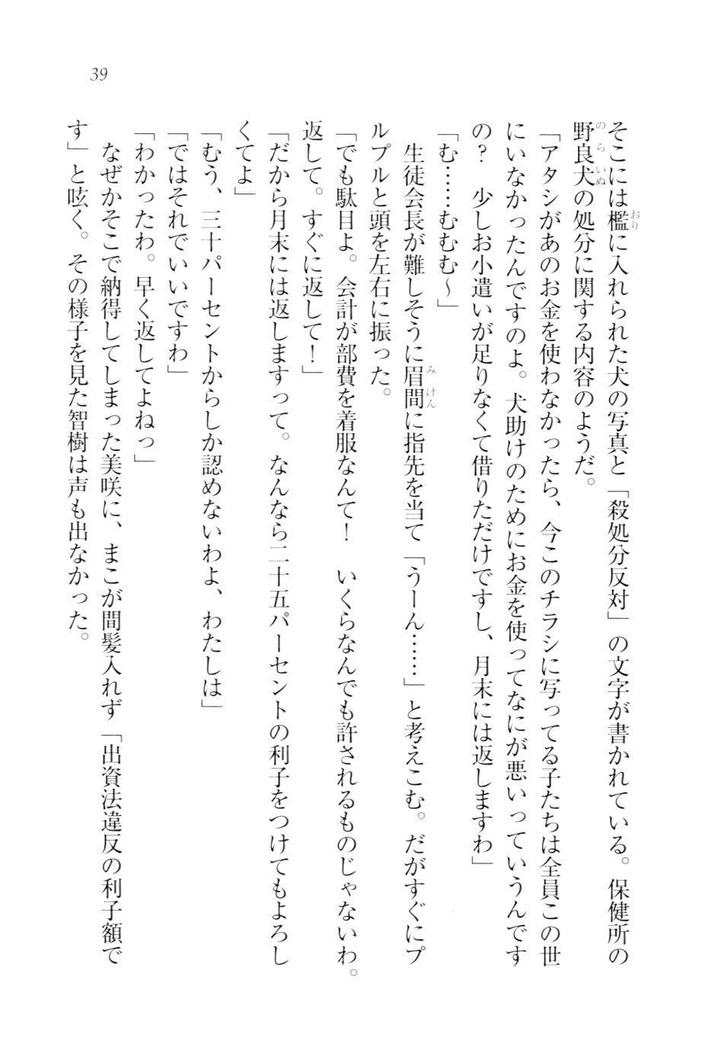 39
そこには檻に入れられた犬の写真と「殺処分反対」の文字が書かれている。保健所の
野良犬の処分に関する内容のようだ。
「アタシがあのお金を使わなかったら、今このチラシに写ってる子たちは全員この世
にいなかったんですのよ。犬助けのためにお金を使ってなにが悪いっていうんです
の？　少しお小遣いが足りなくて借りただけですし、月末には返しますわ」
「む……むむむ～」
生徒会長が難しそうに眉間に指先を当て「うーん……」と考えこむ。だがすぐにプ
ルプルと頭を左右に振った。
「でも駄目よ。会計が部費を着服なんて！　いくらなんでも許されるものじゃないわ。
返して。すぐに返して！」
「だから月末には返しますって。なんなら二十五パーセントの利子をつけてもよろし
くてよ」
「むう、三十パーセントからしか認めないわよ、わたしは」
「ではそれでいいですわ」
「わかったわ。早く返してよねっ」
なぜかそこで納得してしまった美咲に、まこが間髪入れず「出資法違反の利子額で
す」と呟く。その様子を見た智樹は声も出なかった。